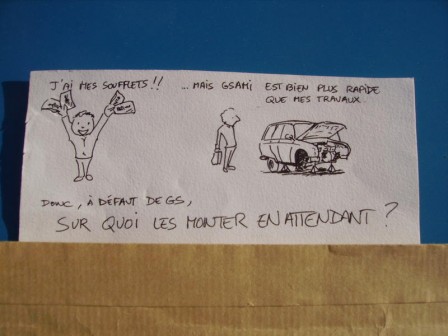 J'AI MES SOUFFLETS !! ...MAIS GSAMI EST BIEN PLUS RAPIDE
QUE MES TRAVAUX.
DONC, À DÉFAUT DE GS,
SUR QUOI LES MONTER EN ATTENDANT ?